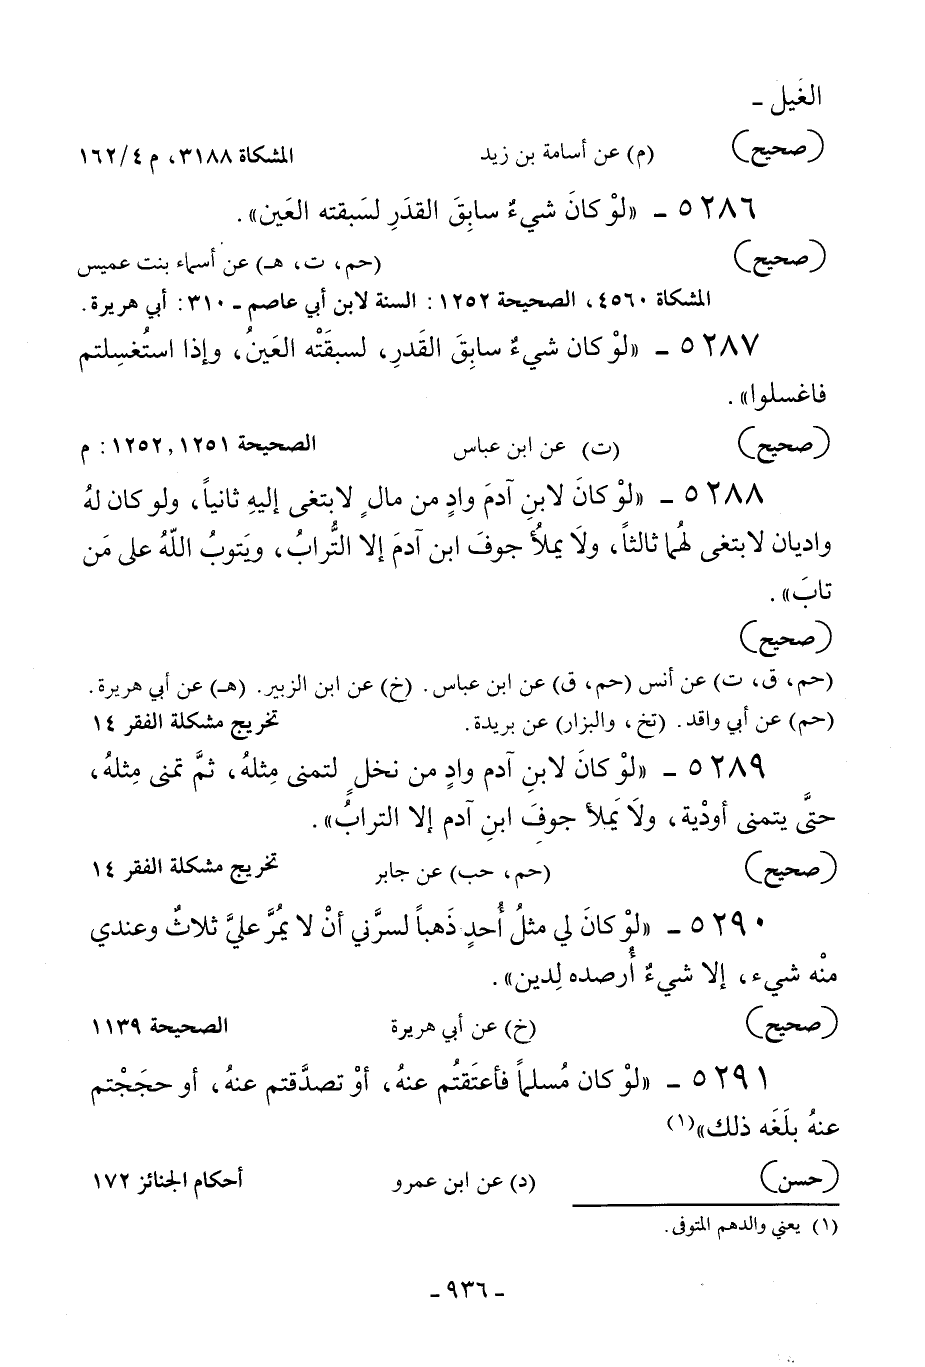 الغَيل -
(صحيح) (م) عن أسامة بن زيد المشكاة ٣١٨٨، م ١٦٢/٤
٥٢٨٦ - «لوْ كانَ شيءٌ سابِقَ القدَرِ لسَبقته العَين».
(صحيح) (حم، ت، هـ) عن أسماء بنت عميس
المشكاة ٤٥٦٠، الصحيحة ١٢٥٢: السنة لابن أبي عاصم - ٣١٠: أبي هريرة.
٥٢٨٧ - «لوْ كان شيءٌ سابِقَ القَدَرِ، لسبقَتْه العَينُ، وإذا استُغسِلتم
فاغسلوا».
(صحيح) (ت) عن ابن عباس الصحيحة ١٢٥١, ١٢٥٢: م
٥٢٨٨ - «لوْ كانَ لابنِ آدمَ وادٍ من مالٍ لابتغى إليهِ ثانياً، ولو كان لهُ
واديان لابتغى لهُما ثالثاً، ولَا يملأُ جوفَ ابن آدمَ إلا التُّرابُ، ويَتوبُ اللّهُ على مَن
تابَ».
(صحيح)
(حم، ق، ت) عن أنس (حم، ق) عن ابن عباس. (خ) عن ابن الزبير. (هـ) عن أبي هريرة.
(حم) عن أبي واقد. (تخ، والبزار) عن بريدة. تخريج مشكلة الفقر ١٤
٥٢٨٩ - «لوْ كانَ لابنِ آدم وادٍ من نخلٍ لتمنى مِثلهُ، ثمَّ تمنى مِثلهُ،
حتَّى يتمنى أودْية، ولَا يَملأ جوفَ ابنِ آدم إلا الترابُ».
(صحيح) (حم، حب) عن جابر تخريج مشكلة الفقر ١٤
٥٢٩٠ - «لوْ كانَ لي مثلُ أُحدٍ ذَهباً لسرَّني أنْ لا يمُرَّ عليَّ ثلاثٌ وعندي
منْه شيء، إلا شيءٌ أُرصده لِدين».
(صحيح) (خ) عن أبي هريرة الصحيحة ١١٣٩
٥٢٩١ - «لوْ كان مُسلماً فأعتَقتُم عنهُ، أوْ تصدَّقتم عنهُ، أو حجَجْتم
عنهُ بلَغَه ذلك»(١)
(حسن) (د) عن ابن عمرو أحكام الجنائز ١٧٢
(١) يعني والدهم المتوفى.
- ٩٣٦ -